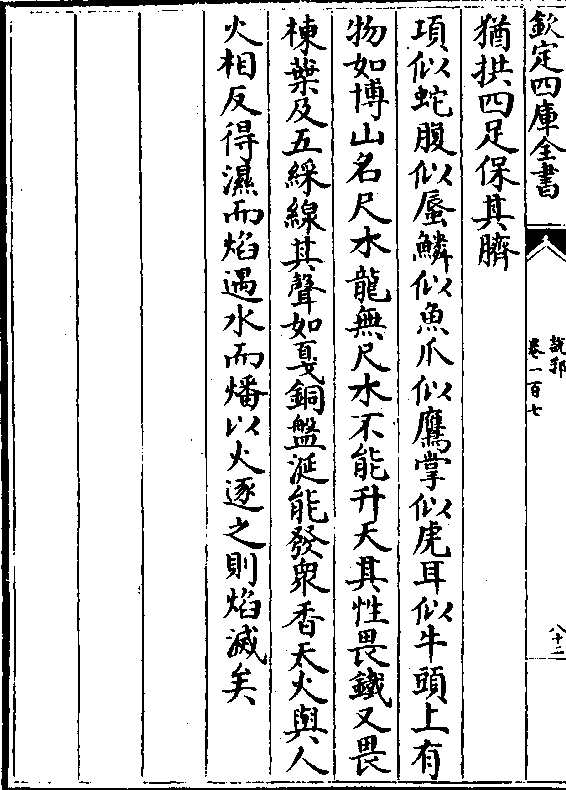 欽定四庫全書
說郛
卷一百七
八十二
猶拱四足保其臍
項似蛇腹似蜃鱗似魚爪似鷹掌似虎耳似牛頭上有
物如博山名尺水龍無尺水不能升天其性畏鐵又畏
楝葉及五綵線其聲如戛銅盤涎能發衆香太火與人
火相反得濕而焰遇水而燔以火逐之則焰滅矣